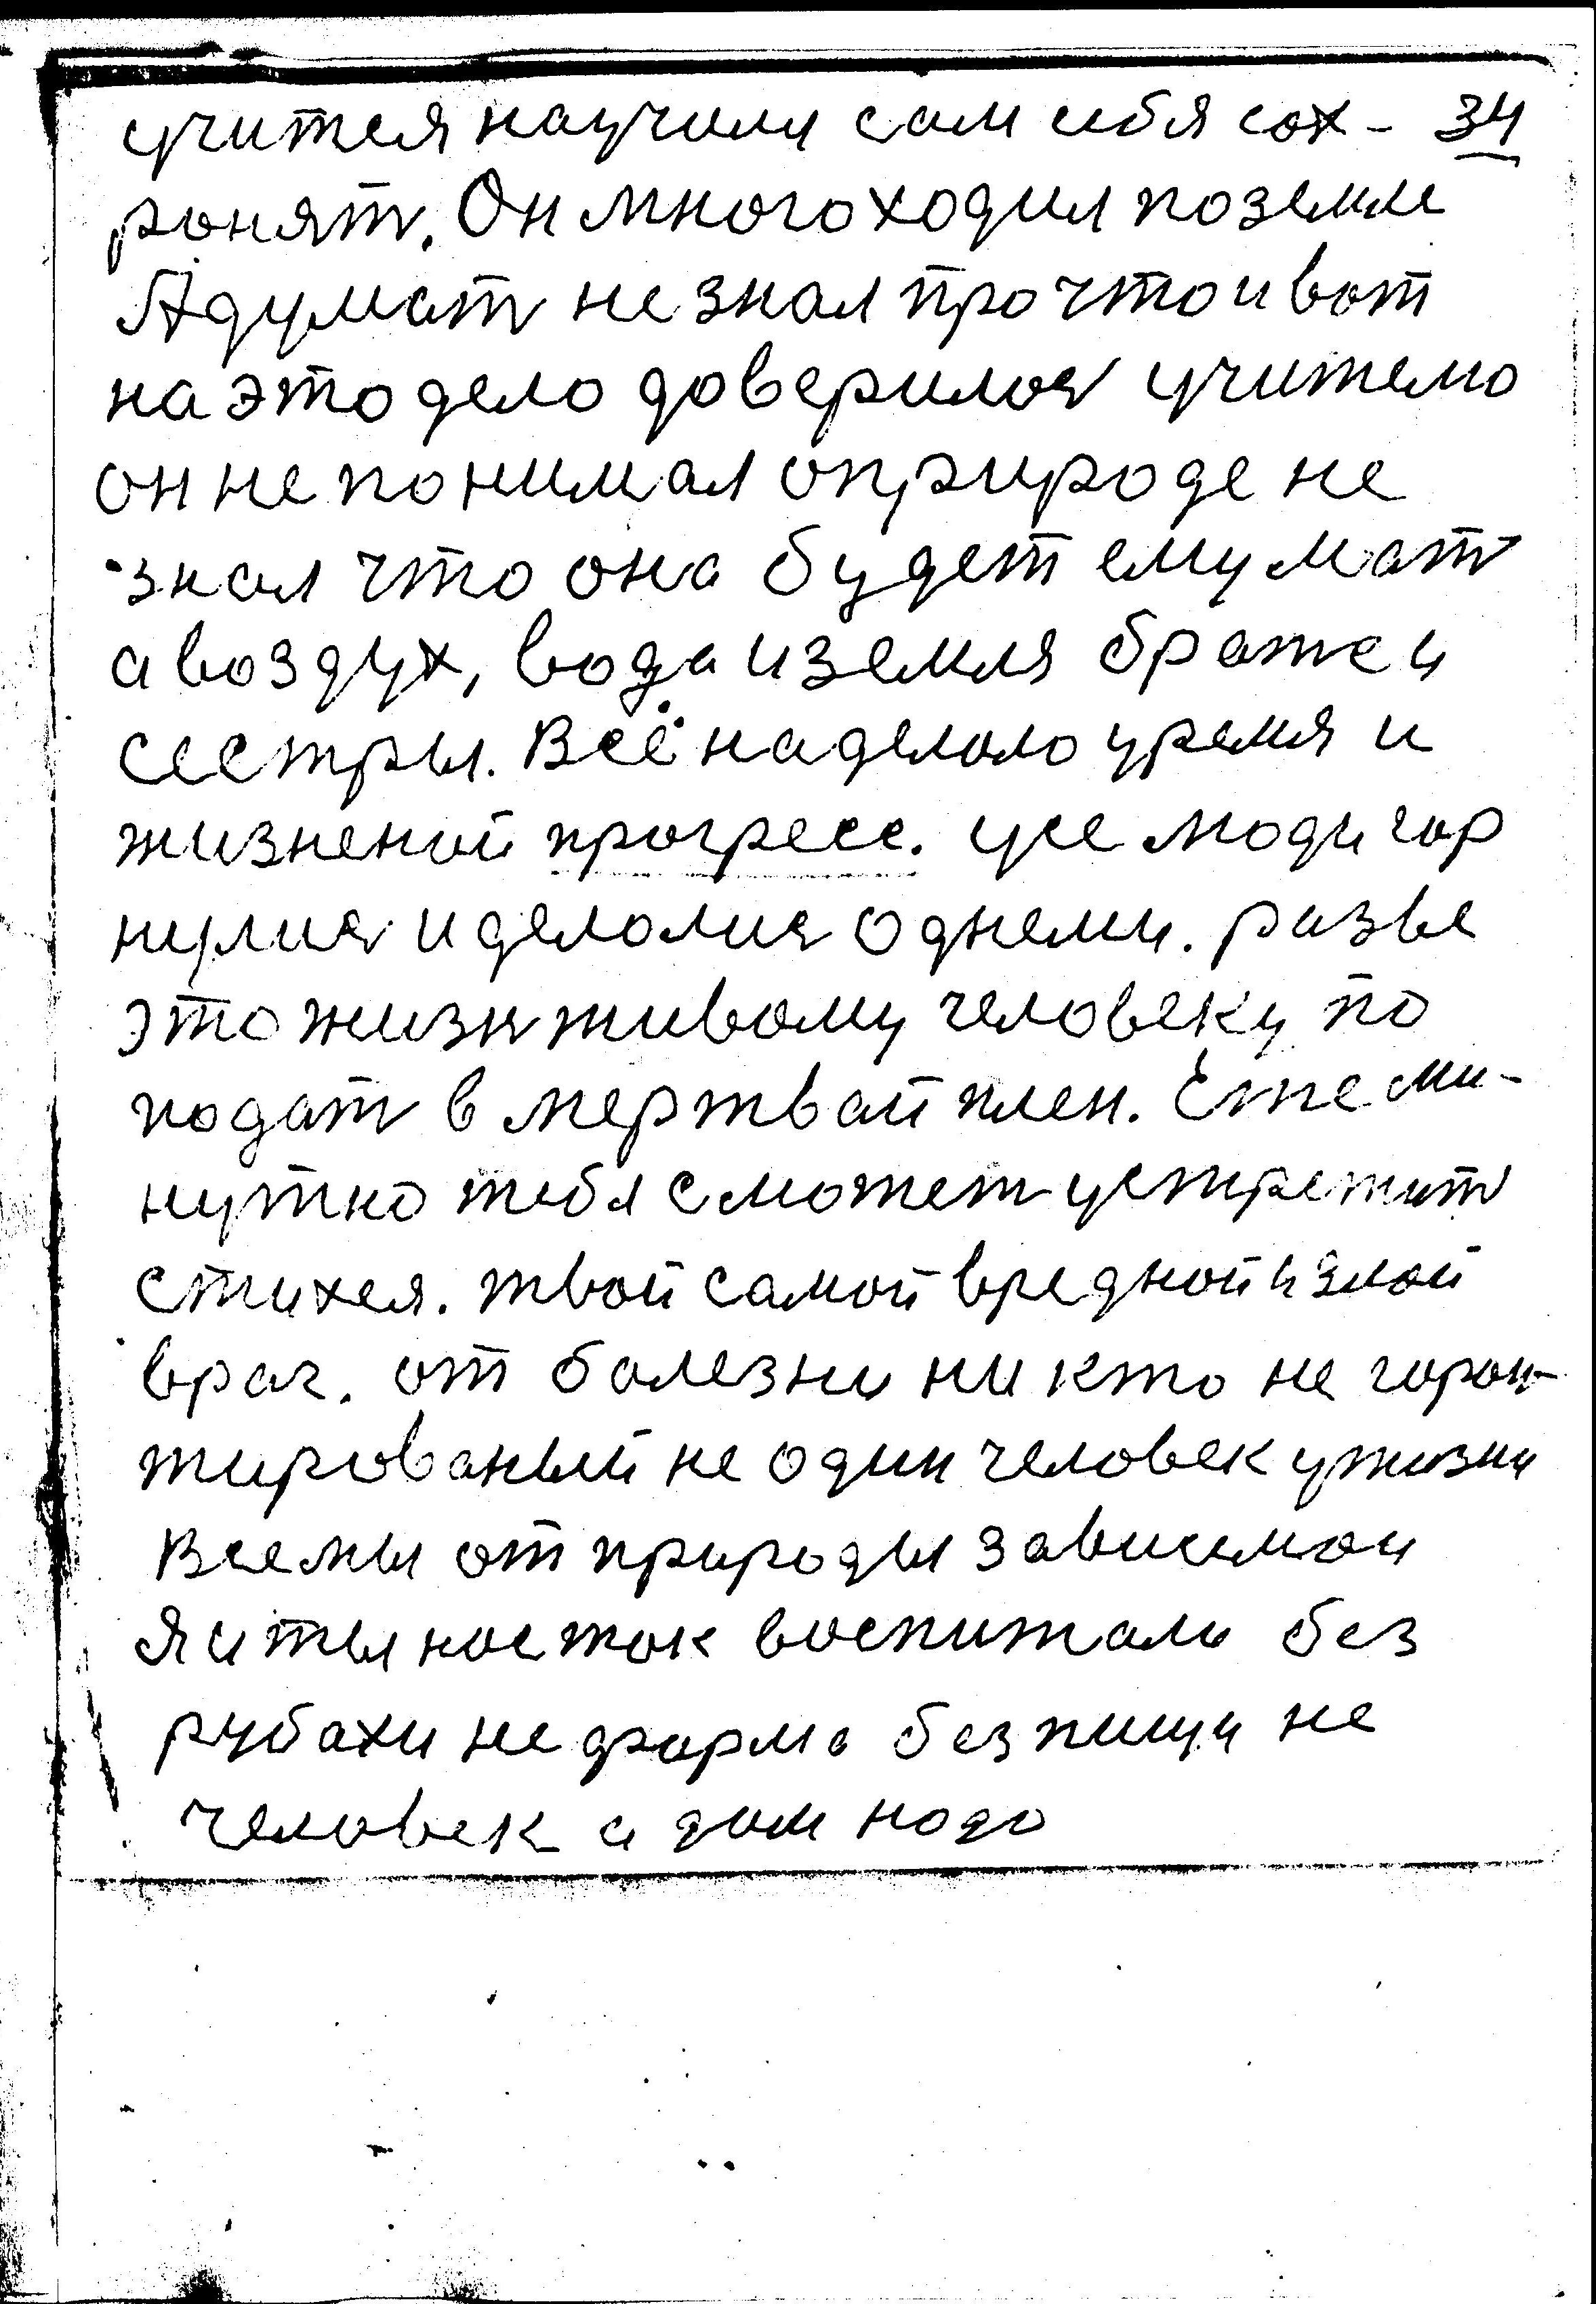 учителя научили сам себя сох- 34
ронят. Он много ходил по земле
А думат не знал про что и вот
на это дело доверился учителю
он не понимал о природе не
знал что она будет ему мат
а воздух, вода и земля братеи
сестры. Всё наделало уремя и
жизненой прогресс. усе люди гор
нулися и делолися однеми. разве
это жизн живому человеку по
подат в мертвай плен. Ёще ми-
нутко тебя сможет устретит
стихея. твой самой вредной и злой
враг. от болезни ни кто не горон-
тированый не один человек у жизни
Все мы от природы зависемои
Я и ты нас так воспитали без
рубахи не форма без пищи не
человек а дом надо